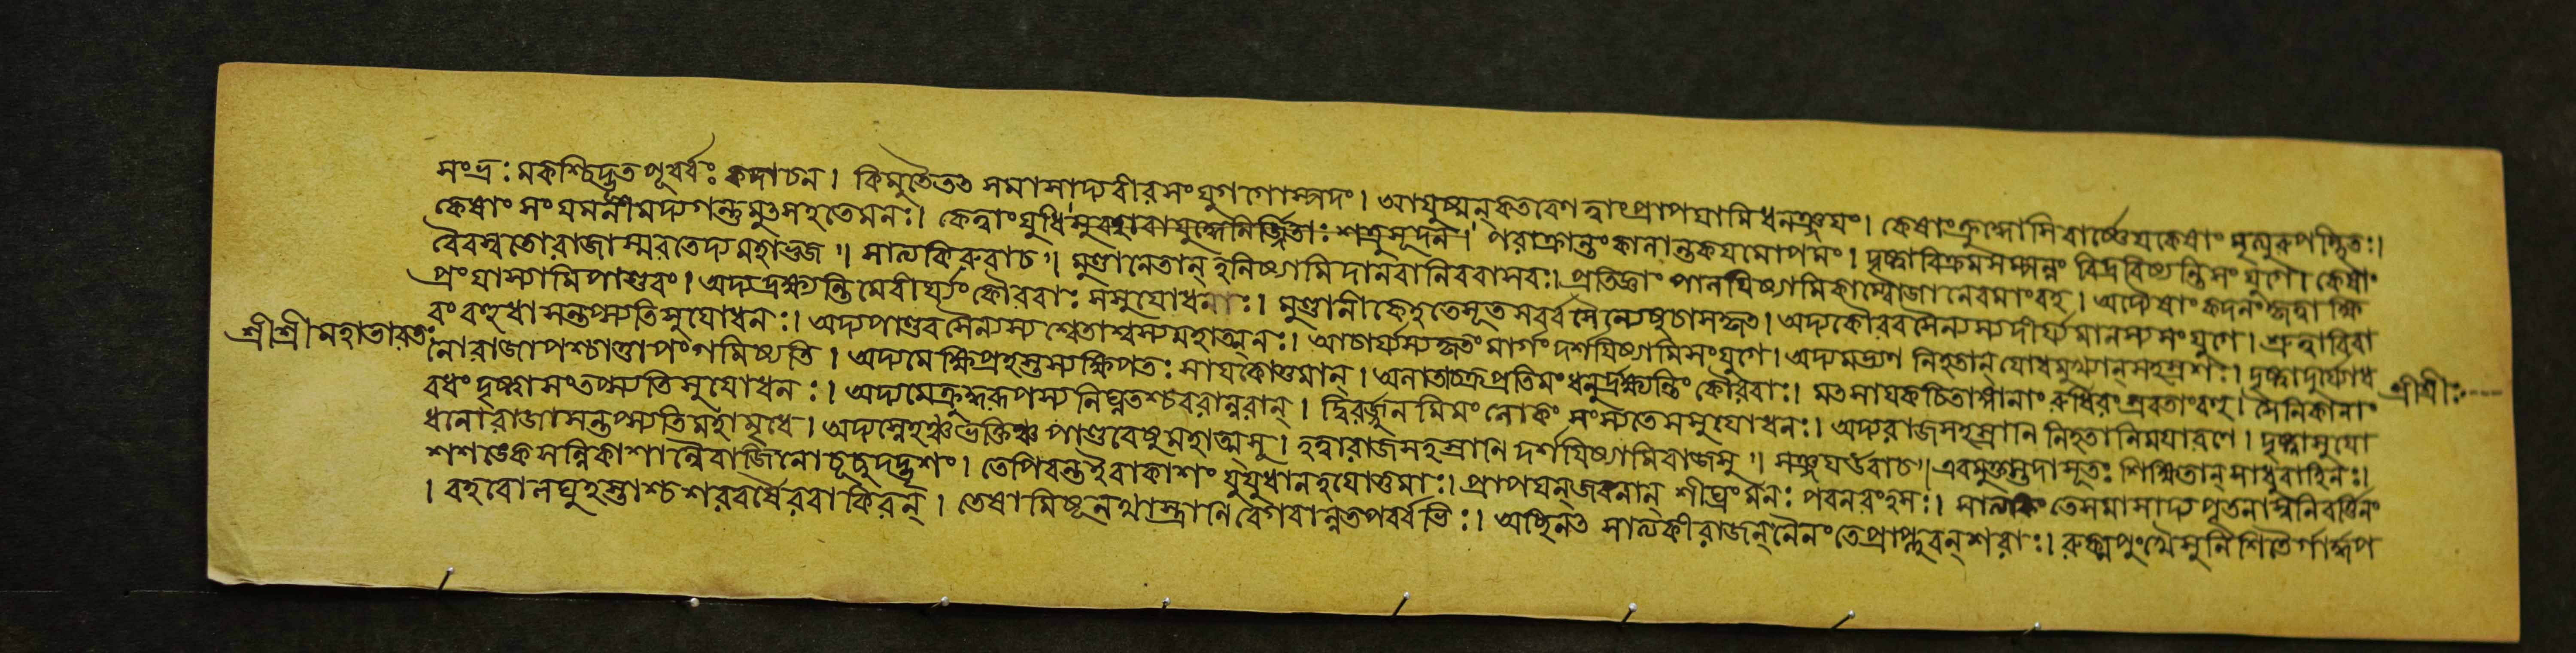 সংভ্রঃ মকশ্চিদ্ভুত পূবর্বঃ কদাচন। কিমুতৈতৎ সমাসাদ্যবীরসংযুগগোষ্পদং। আয়ুষ্মন্ কতবেণ ত্বাংপ্রাপয়ামিধনঞ্জয়ং। কেষাংক্রুদ্ধোসিবার্ষ্ণেয়কেষাং মৃত্যুরুপস্থিতঃ।
কেষাং সংযমনীমদ্যগন্তুমুৎসহতেমনঃ। কেত্বাংযুধি পরাক্রান্তংকালান্তকযমোপমং। দৃষ্ট্বাবিক্রমসম্পন্নং বিদ্রবিষ্যন্তিসংযুগে। কেষাং
বৈবস্বতোরাজাস্মরতেদ্যমহাভুজ॥ সাত্যকিরুবাচ॥ মুণ্ডানেতান্ হনিষ্যামিদানবানিববাসবঃ। প্রতিজ্ঞাং পালয়িষ্যামিকাম্বোজানেবমাংবহ। অদ্যৈষাংকদনংকৃত্বা ক্ষি
প্রংযাস্যামিপাণ্ডবং। অদ্যদ্রক্ষ্যন্তিমেবীর্য্যংকৌরবাঃ সসুযোধনাঃ। মুণ্ডানীকেহতেসূত সবর্বসৈন্যেষুচাসকৃৎ। অদ্যকৌরবসৈন্যস্যদীর্য্যমানস্যসংযুগে। শ্রুত্বাবিরা
বং বহুধা সন্তপ্স্যতিসুযোধনঃ। অদ্যপাণ্ডবসৈন্যস্যশ্বেতাশ্বস্যমহাত্মনঃ। আচার্য্যস্যকৃতংমার্গং দর্শয়িষ্যামিসংযুগে। অদ্যমদ্বাণ নিহতান্ যোধমুখ্যান্সহস্রশঃ। দৃষ্ট্বাদুর্য্যোধ
শ্রীশ্রীমহাভারতঃ
নোরাজাপশ্চাত্তাপংগমিষ্যতি। অদ্যমেক্ষিপ্রহস্তস্যক্ষিপতঃ সায়কোত্তমান্। অলাতচক্রপ্রতিমংধনুর্দ্রক্ষ্যন্তি কৌরবাঃ। মৎসায়কচিতাঙ্গানাং রুধিরংস্রবতাংবহু। সৈনিকানাং
শ্রীশ্রীঃ
বধং দৃষ্ট্বাসংতপ্স্যতিসুযোধনঃ। অদ্যমেক্রুদ্ধরূপস্যনিঘ্নতশ্চবরান্নরান্। দ্বিরর্জ্জুনমিমংলোকং মংস্যতেসসুযোধনঃ। অদ্যরাজসহস্রাণি নিহতানিময়ারণে। দৃষ্ট্বাসুযো
ধনোরাজাসন্তপ্স্যতিমহামৃধে। অদ্যস্নেহঞ্চভক্তিঞ্চ পাণ্ডবেষুমহাত্মসু। হত্বারাজসহস্রাণি দর্শয়িষ্যামিরাজসু॥ সঞ্জয়উবাচ॥ এবমুক্তস্তদাসূতঃ শিক্ষিতান্ সাধুবাহিনঃ।
শশঙ্কেসন্নিকাশান্বৈবাজিনোচূচুদদ্ভৃশং। তেপিবন্তইবাকাশং যুযুধানংহয়োত্তমাঃ। প্রাপয়ন্জবনান্ শীঘ্রং মনঃ পবনরংহসঃ। সাত্যকিং তেসমাসাদ্য পৃতনাস্বনিবর্ত্তিনং
। বহবোলঘুহস্তাশ্চ শরবর্ষৈরবাকিরন্। তেষামিষূনথাস্ত্রাণিবেগবান্নতপবর্বভিঃ। অচ্ছিনৎ সাত্যকীরাজন্নৈনংতেপ্রাপ্নুবন্শরাঃ। রুক্মপুংখৈসুনিশিতৈর্গার্দ্ধপ